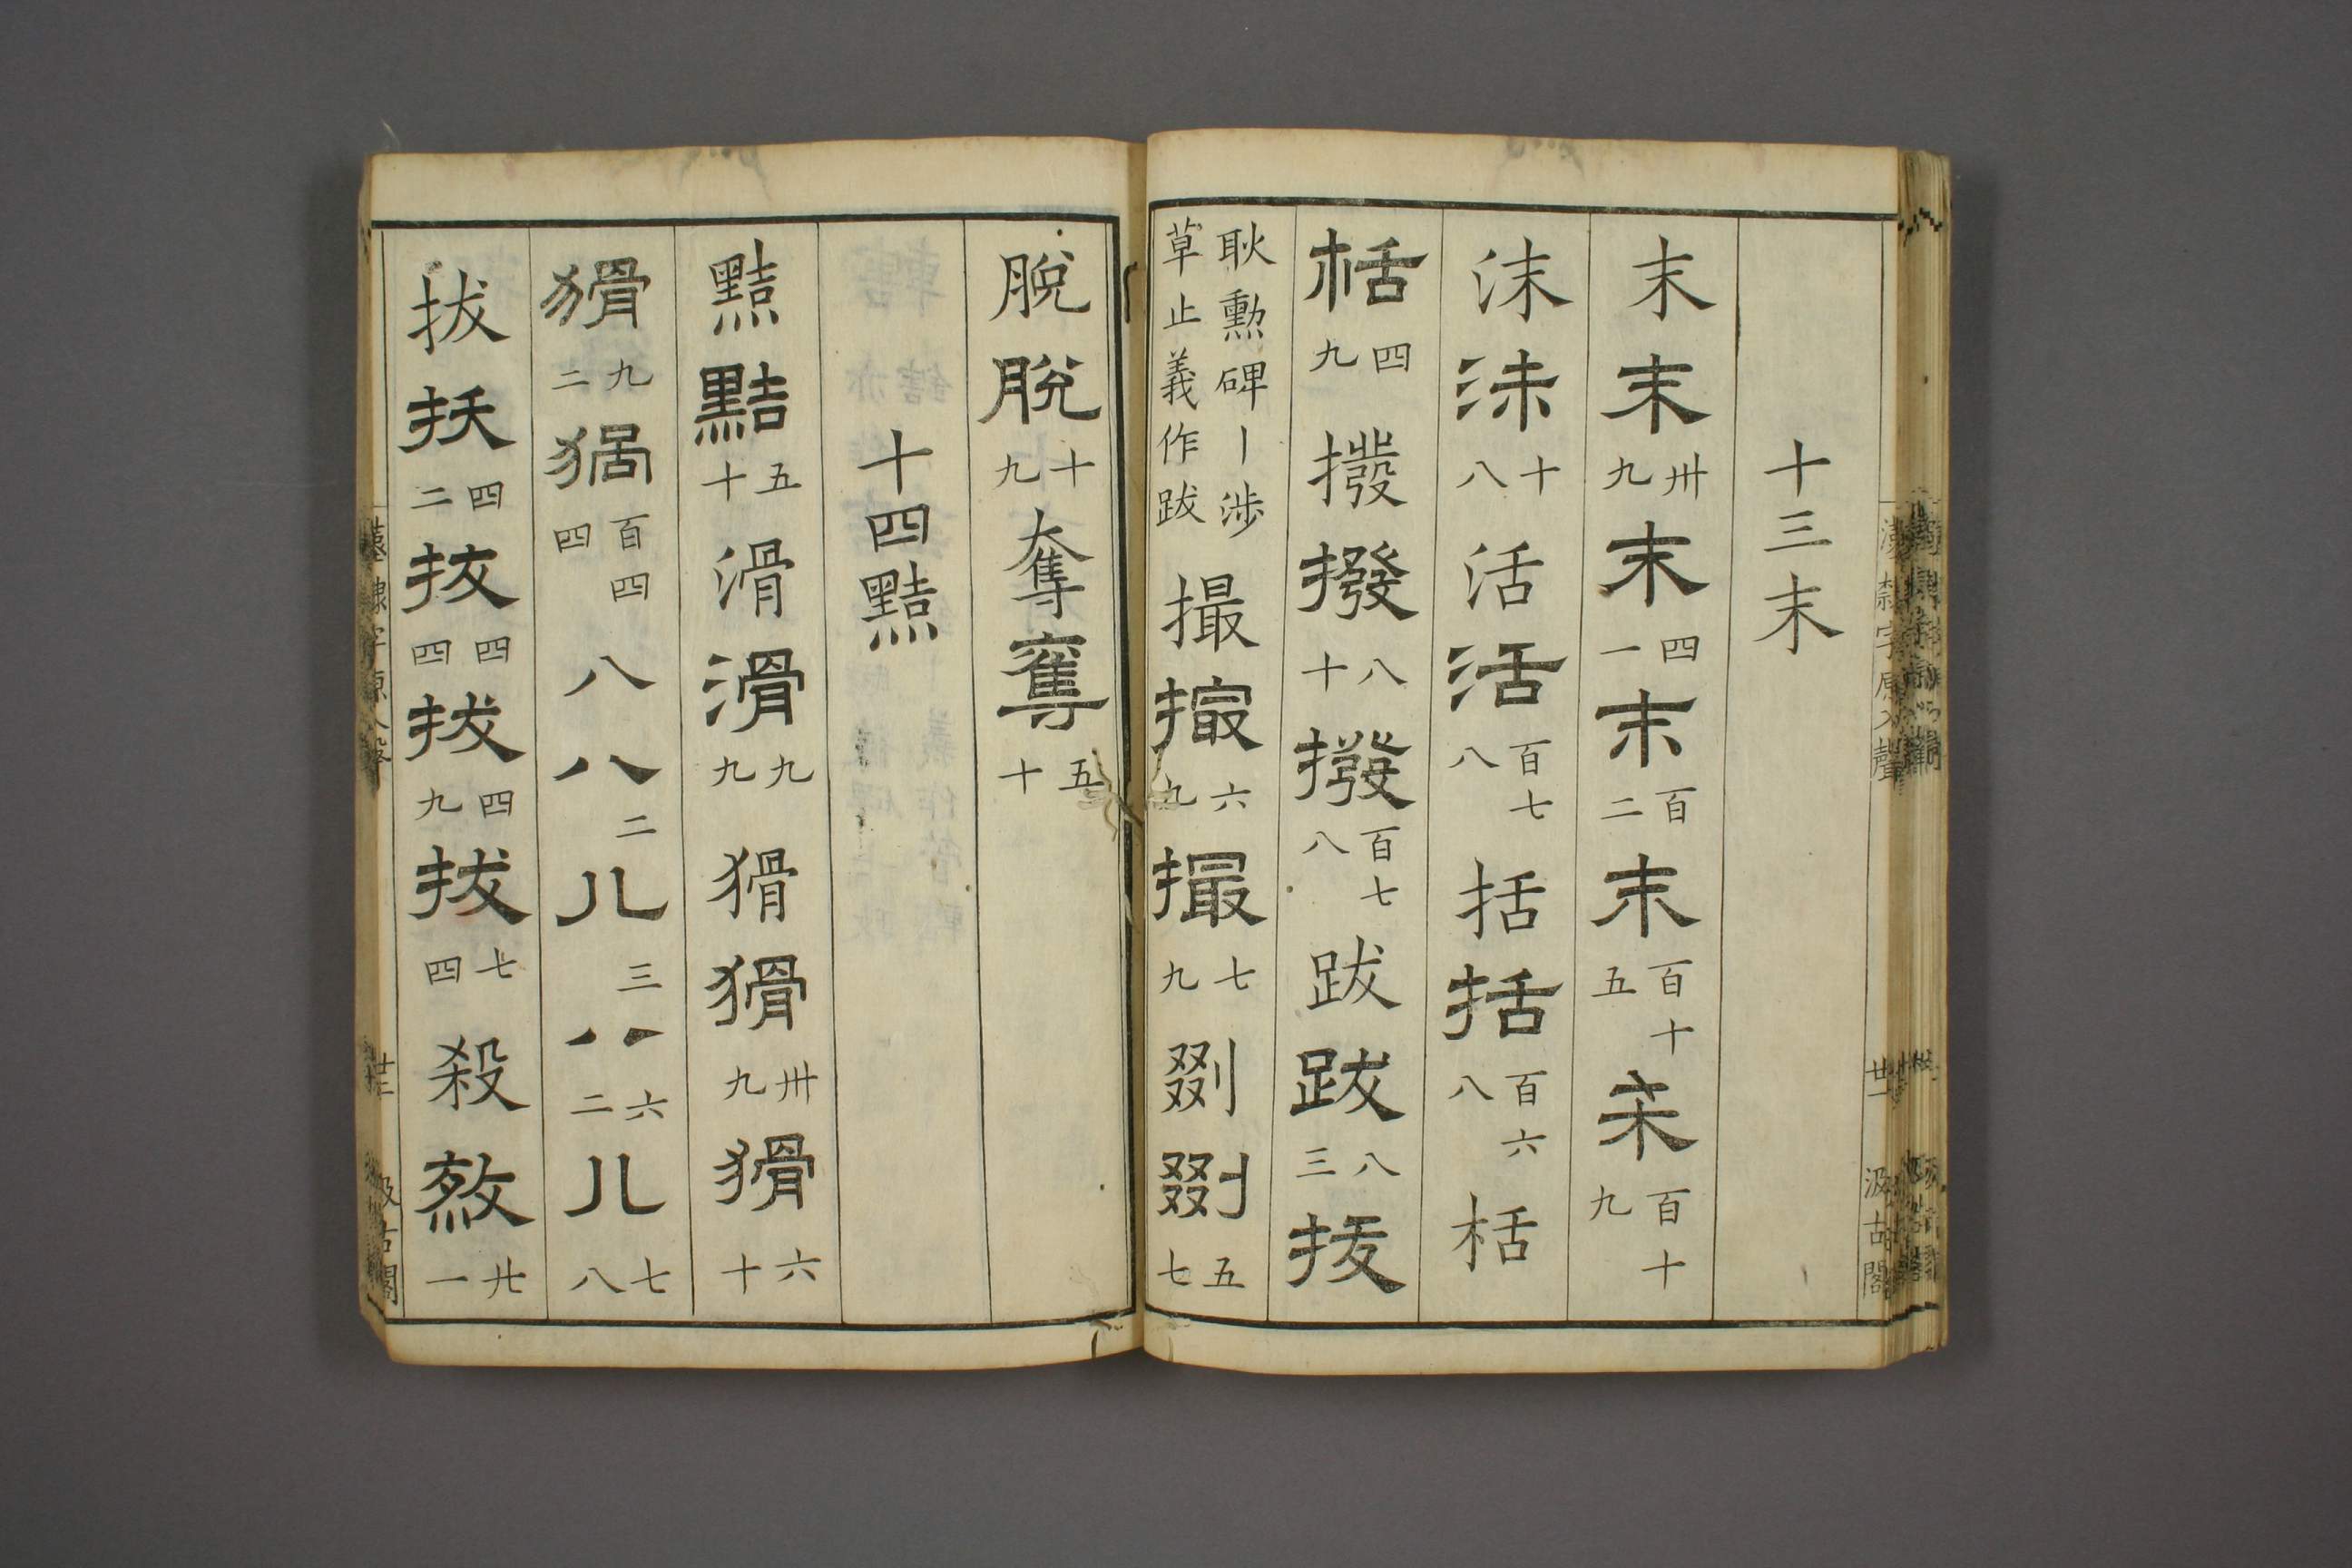 十三末
末末卅九末四一末百二末百十五末百十九
沫沫十八活活百七八括括百六八栝
栝四九撥撥八十撥百七八跋跋八三拔
耿勳碑丨涉草止義作跋撮撮六九撮七九剟剟五七
漢隸字原入聲 廿一 汲古閣
脫脫十九奪奪五十
十四黠
黠黠五十滑滑九九猾猾卅九猾六十
猾九二猾百四四八八二八三八六二八七八
拔拔四二拔四四拔四九拔七四殺殺廿一
漢隸字原入聲 廿二 汲古閣